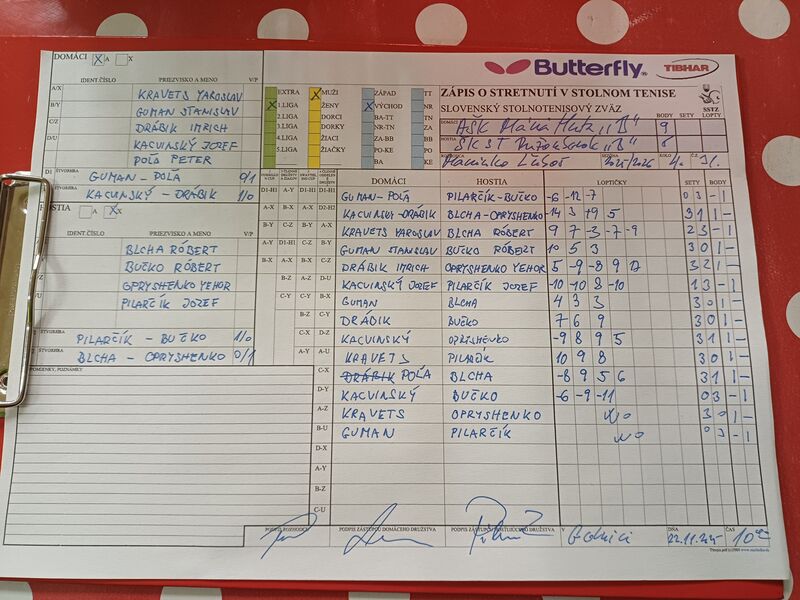 DOMÁCI X A X
Butterfly TIBHAR
IDENT.ČÍSLO PRIEZVISKO A MENO V/P
A/X KRAVETS YAROSLAV
B/Y GUMAN STANISLAV
C/Z DRÁBIK IMRICH
D/U KACVINSKÝ JOZEF
POĽA PETER
D1 ŠTVORHRA GUMAN - POĽA 0/1
ŠTVORHRA KACVINSKÝ - DRÁBIK 1/0
HOSTIA A X X
IDENT.ČÍSLO PRIEZVISKO A MENO V/P
BLCHA RÓBERT
BUČKO RÓBERT
OPRYSHENKO YEHOR
PILARČÍK JOZEF
ŠTVORHRA PILARČÍK - BUČKO 1/0
ŠTVORHRA BLCHA - OPRYSHENKO 0/1
POMIENKY, POZNÁMKY
EXTRA X MUŽI ZÁPAD TT
X 1.LIGA ŽENY X VÝCHOD NR
2.LIGA DORCI BA-TT TN
3.LIGA DORKY NR-TN ZA
4.LIGA ŽIACI ZA-BB BB
5.LIGA ŽIAČKY PO-KE PO
KE
ZÁPIS O STRETNUTÍ V STOLNOM TENISE
SLOVENSKÝ STOLNOTENISOVÝ ZVÄZ
SSTZ
DOMÁCI AŠK BODY 9 LOPTY
HOSTIA ŠK ST "B"
SEZÓNA 2025/2026 KOLO
DOMÁCI HOSTIA LOPTIČKY SETY BODY
D1-H1 A-Y D1-H1 GUMAN - POĽA PILARČIK - BUČKO -6 -12 -7 0 3 - 1
A-X B-X D2-H2 KACVINSKÝ - DRÁBIK BLCHA - OPRYSHENKO 14 3 +9 5 3 1 1 -
B-Y C-Z A-X KRAVETS YAROSLAV BLCHA RÓBERT 9 7 -3 -7 -9 2 3 - 1
A-Y D1-H1 B-Y GUMAN STANISLAV BUČKO RÓBERT 10 5 3 3 0 1 -
B-X A-X C-Z DRÁBIK IMRICH OPRYSHENKO YEHOR 5 -9 -8 9 12 3 2 1 -
B-Z D-U KACVINSKÝ JOZEF PILARČÍK JOZEF -10 -10 8 -10 1 3 - 1
C-Y B-X GUMAN BLCHA 4 3 3 3 0 1 -
B-Z C-Y DRÁBIK BUČKO 7 6 9 3 0 1 -
C-X D-Z KACVINSKÝ OPRYSHENKO -9 8 9 5 3 1 1 -
A-Y A-U KRAVETS PILARČÍK 10 9 8 3 0 1 -
C-X DRÁBIK POĽA BLCHA -8 9 5 6 3 1 1 -
D-Y KACVINSKÝ BUČKO -6 -9 -11 0 3 - 1
A-Z KRAVETS OPRYSHENKO WO 3 0 1 -
B-U GUMAN PILARČÍK WO 0 3 - 1
D-X
A-Y
B-Z
C-U
PODPIS ROZHODCU PODPIS ZÁSTUPCU DOMÁCEHO DRUŽSTVA PODPIS ZÁSTUPCU HOSŤUJÚCEHO DRUŽSTVA V DŇA 22.11.2025 ČAS 10